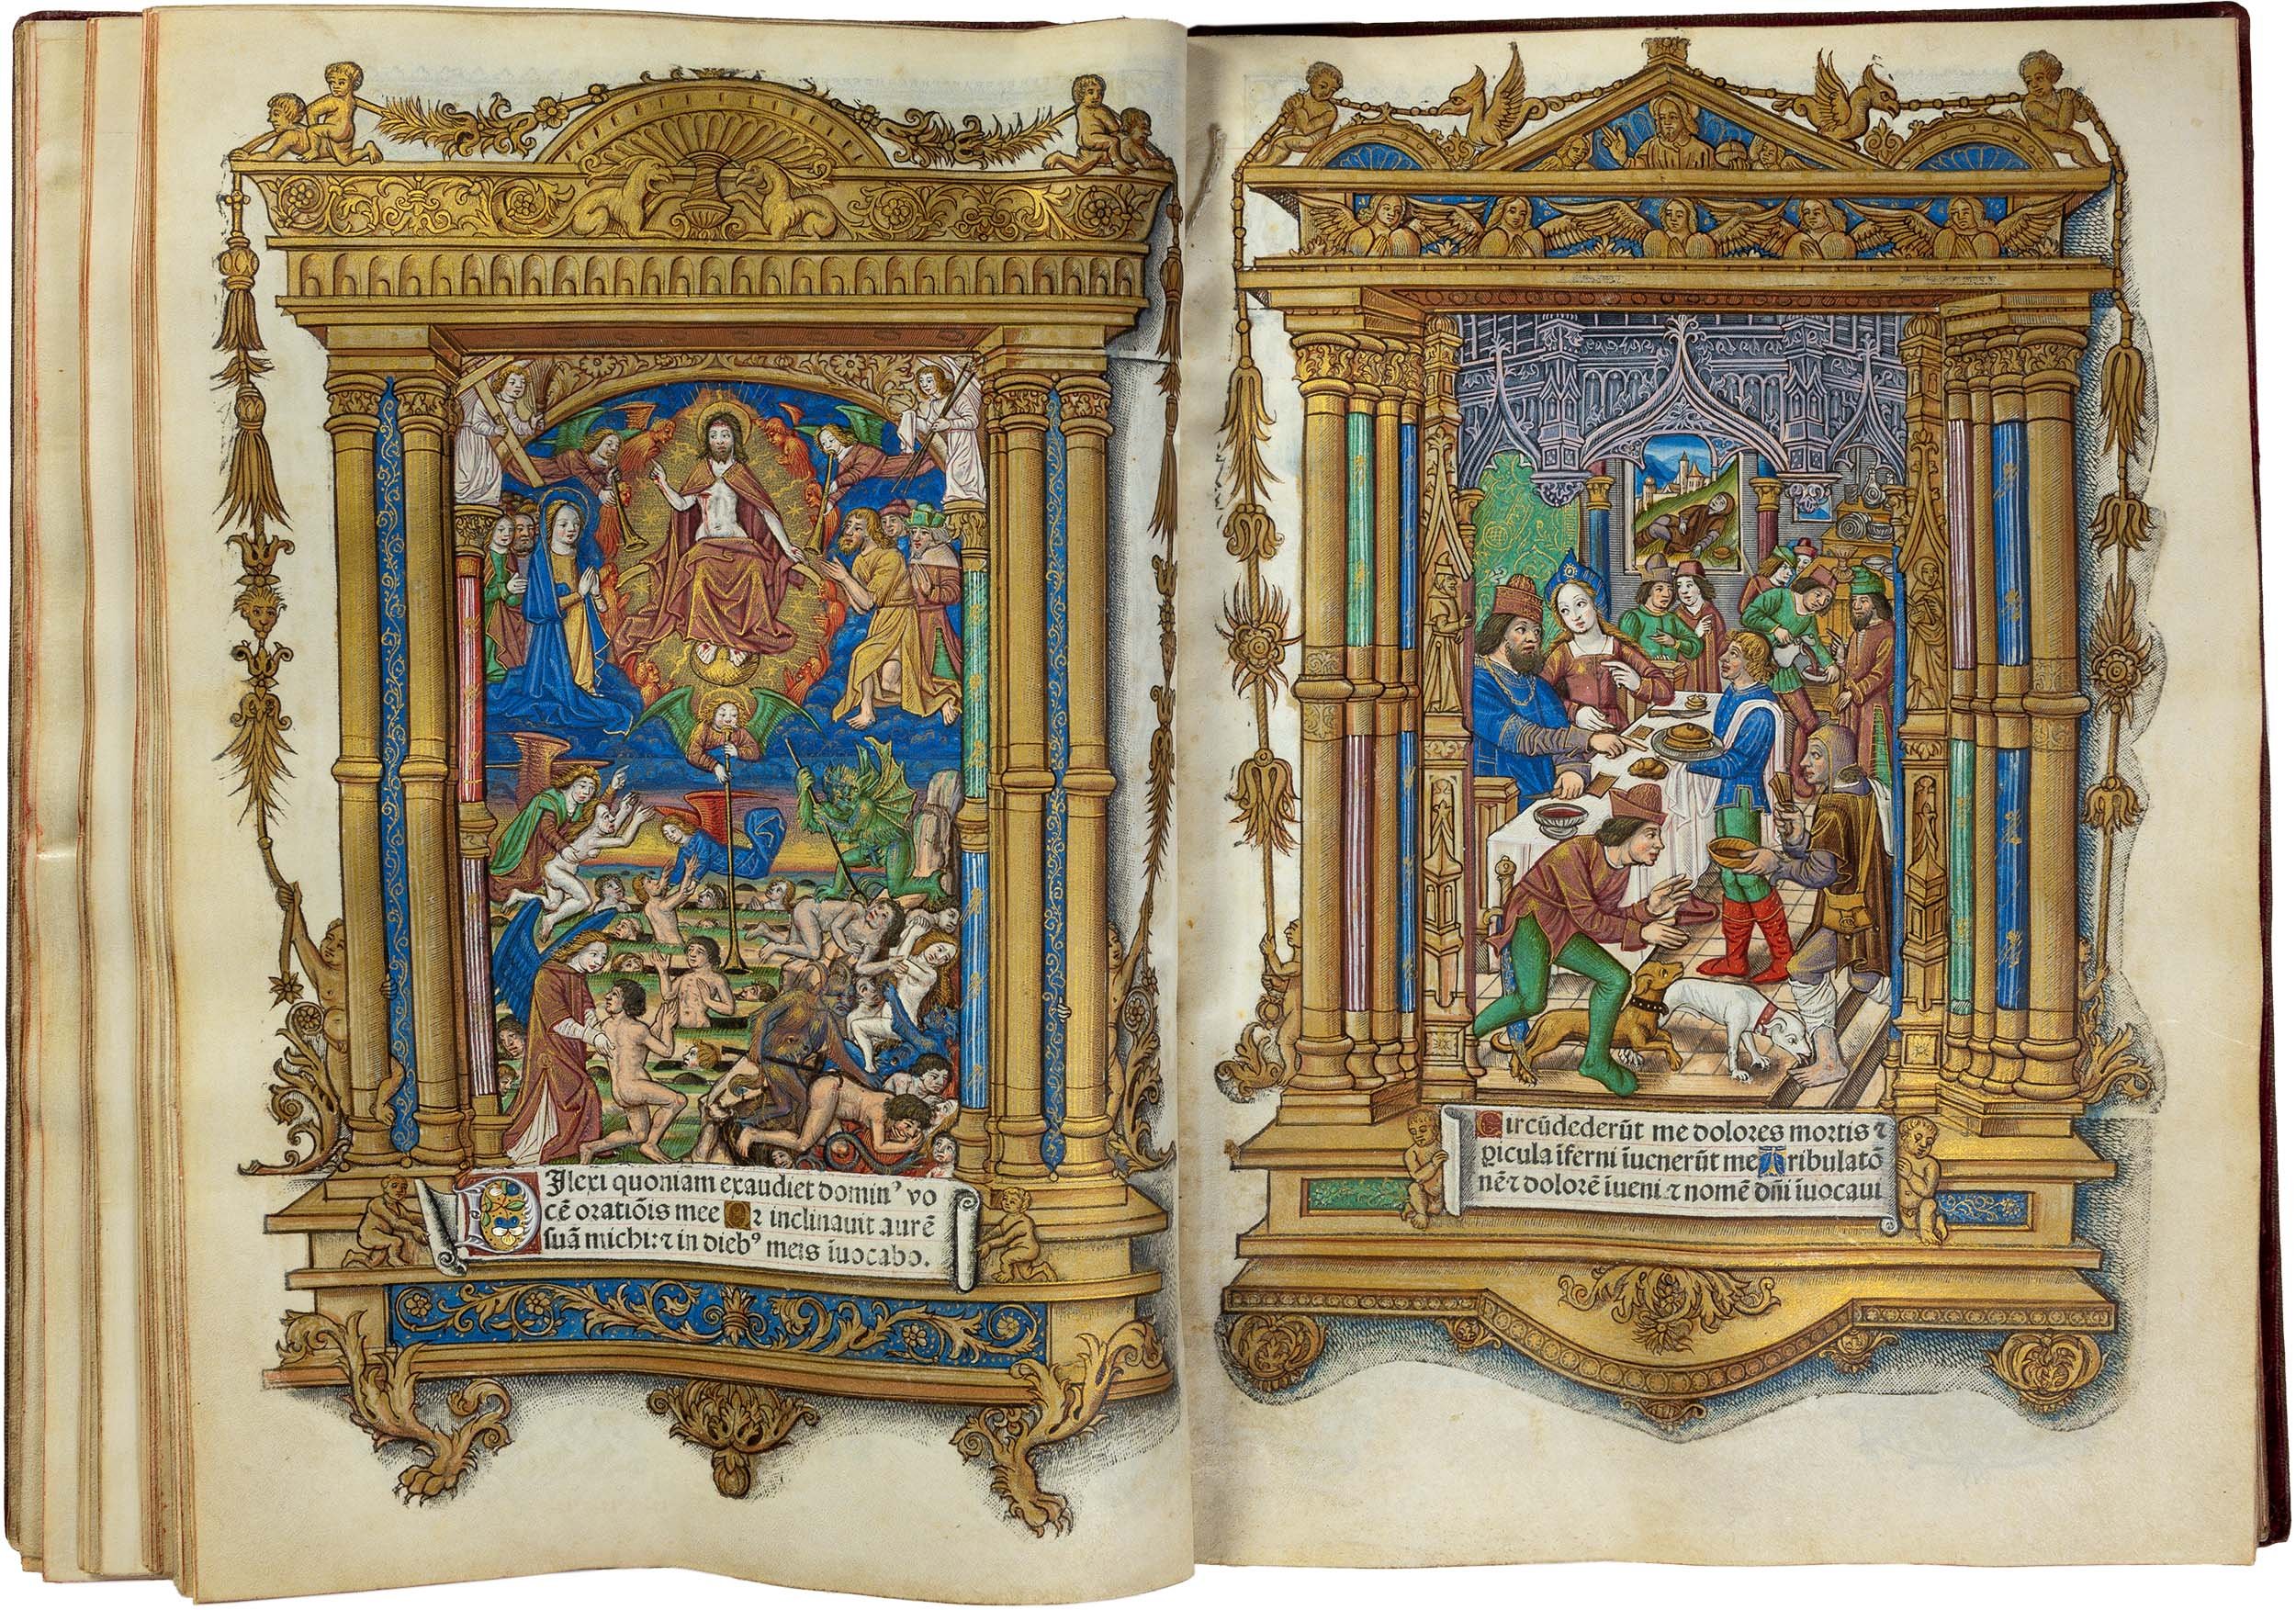 Dilexi quoniam exaudiet domin⁹ vo
cē oratiōis mee Qr inclinauit aurē
suā michi: ⁊ in dieb⁹ meis īuocabo.
Circūdederūt me dolores mortis ⁊
ꝑicula īferni īuenerūt me Tribulatō
nē ⁊ dolorē īueni ⁊ nomē dn̄i īuocaui